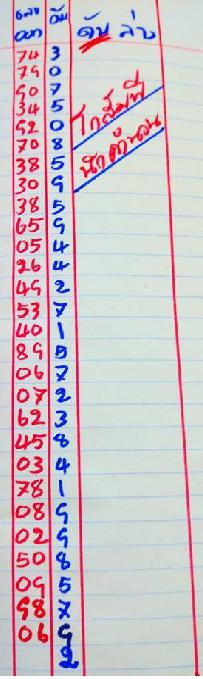 เลข ดับ ดับ ล่าง
ออก
74 3
79 0
90 7
34 5
92 0
70 8
38 5
30 9
38 5
65 9
05 4
26 4
49 2
53 7
40 1
89 5
06 7
07 2
62 3
45 8
03 4
78 1
08 9
02 9
50 8
09 5
98 7
06 9
2
โกสัมพี
นักคำนวน